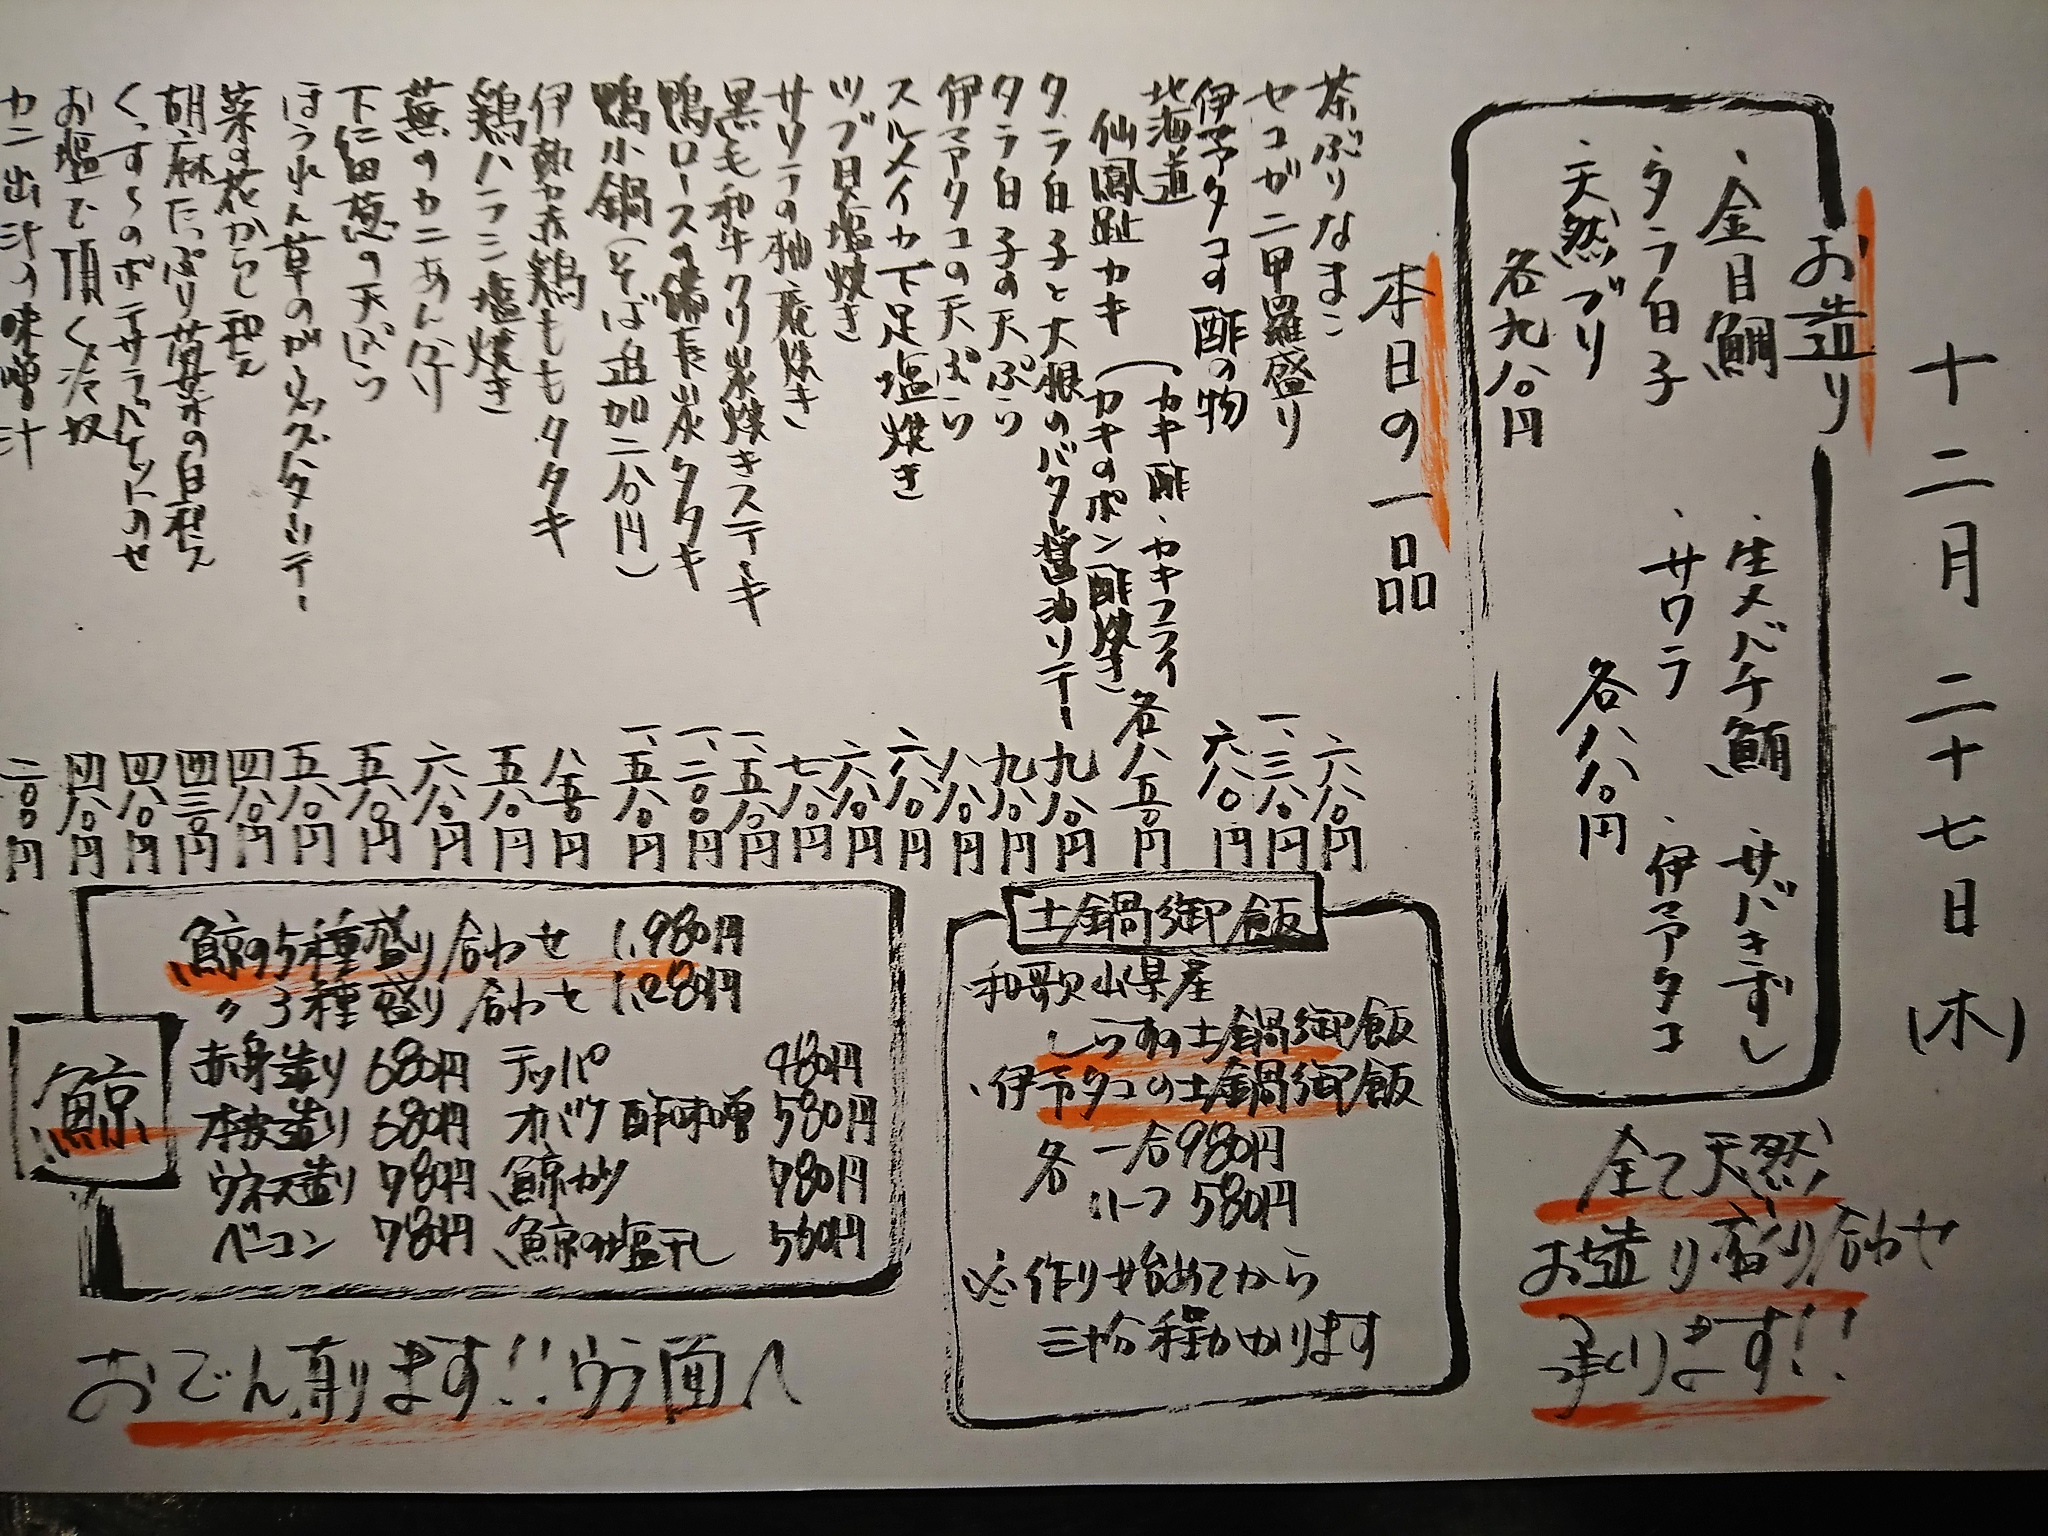 十二月二十七日(木)
お造り
・金目鯛
・タラ白子
・天然ブリ
各九八〇円
・生メバチ鮪
・サワラ
各八八〇円
・サバきずし
・伊予タコ
全て天然
お造り盛り合わせ
承ります!!
本日の一品
茶ぶりなまこ 六八〇円
セコガニ甲羅盛り 一、三八〇円
伊予タコの酢の物 六八〇円
北海道
仙鳳趾カキ(カキ酢・カキフライ
カキのポン酢焼き) 各八五〇円
タラ白子と大根のバター醤油ソテー 九八〇円
タラ白子の天ぷら 九八〇円
伊予タコの天ぷら 八八〇円
スルメイカ下足塩焼き 六八〇円
ツブ貝塩焼き 六八〇円
サワラの柚庵焼き 七八〇円
黒毛和牛クリ炭焼きステーキ 一、五八〇円
鴨ロースの備長炭タタキ 一、二〇〇円
鴨小鍋(そば追加二八〇円) 一、五八〇円
伊勢赤鶏ももタタキ 八五〇円
鶏ハラミ塩焼き 五八〇円
蕪のカニあん分け 六八〇円
下仁田葱の天ぷら 五八〇円
ほうれん草のガーリックバターソテー 五八〇円
菜の花からし和え 四八〇円
胡麻たっぷり菊菜の白和え 四三〇円
くっすくのポテサラバケットのせ 四八〇円
お塩で頂く冷奴 四八〇円
カニ出汁の味噌汁 二〇〇円
土鍋御飯
和歌山県産
しらすの土鍋御飯
・伊予タコの土鍋御飯
各 一合980円
ハーフ 580円
※作り始めてから
三十分程かかります
鯨
鯨の5種盛り合わせ 1,980円
〃3種盛り合わせ 1,280円
赤身造り 680円 テッパ 980円
本皮造り 680円 オバケ酢味噌 580円
ウネス造り 780円 鯨カツ 780円
ベーコン 780円 鯨の塩干し 560円
おでん有ります!!ウラ面へ